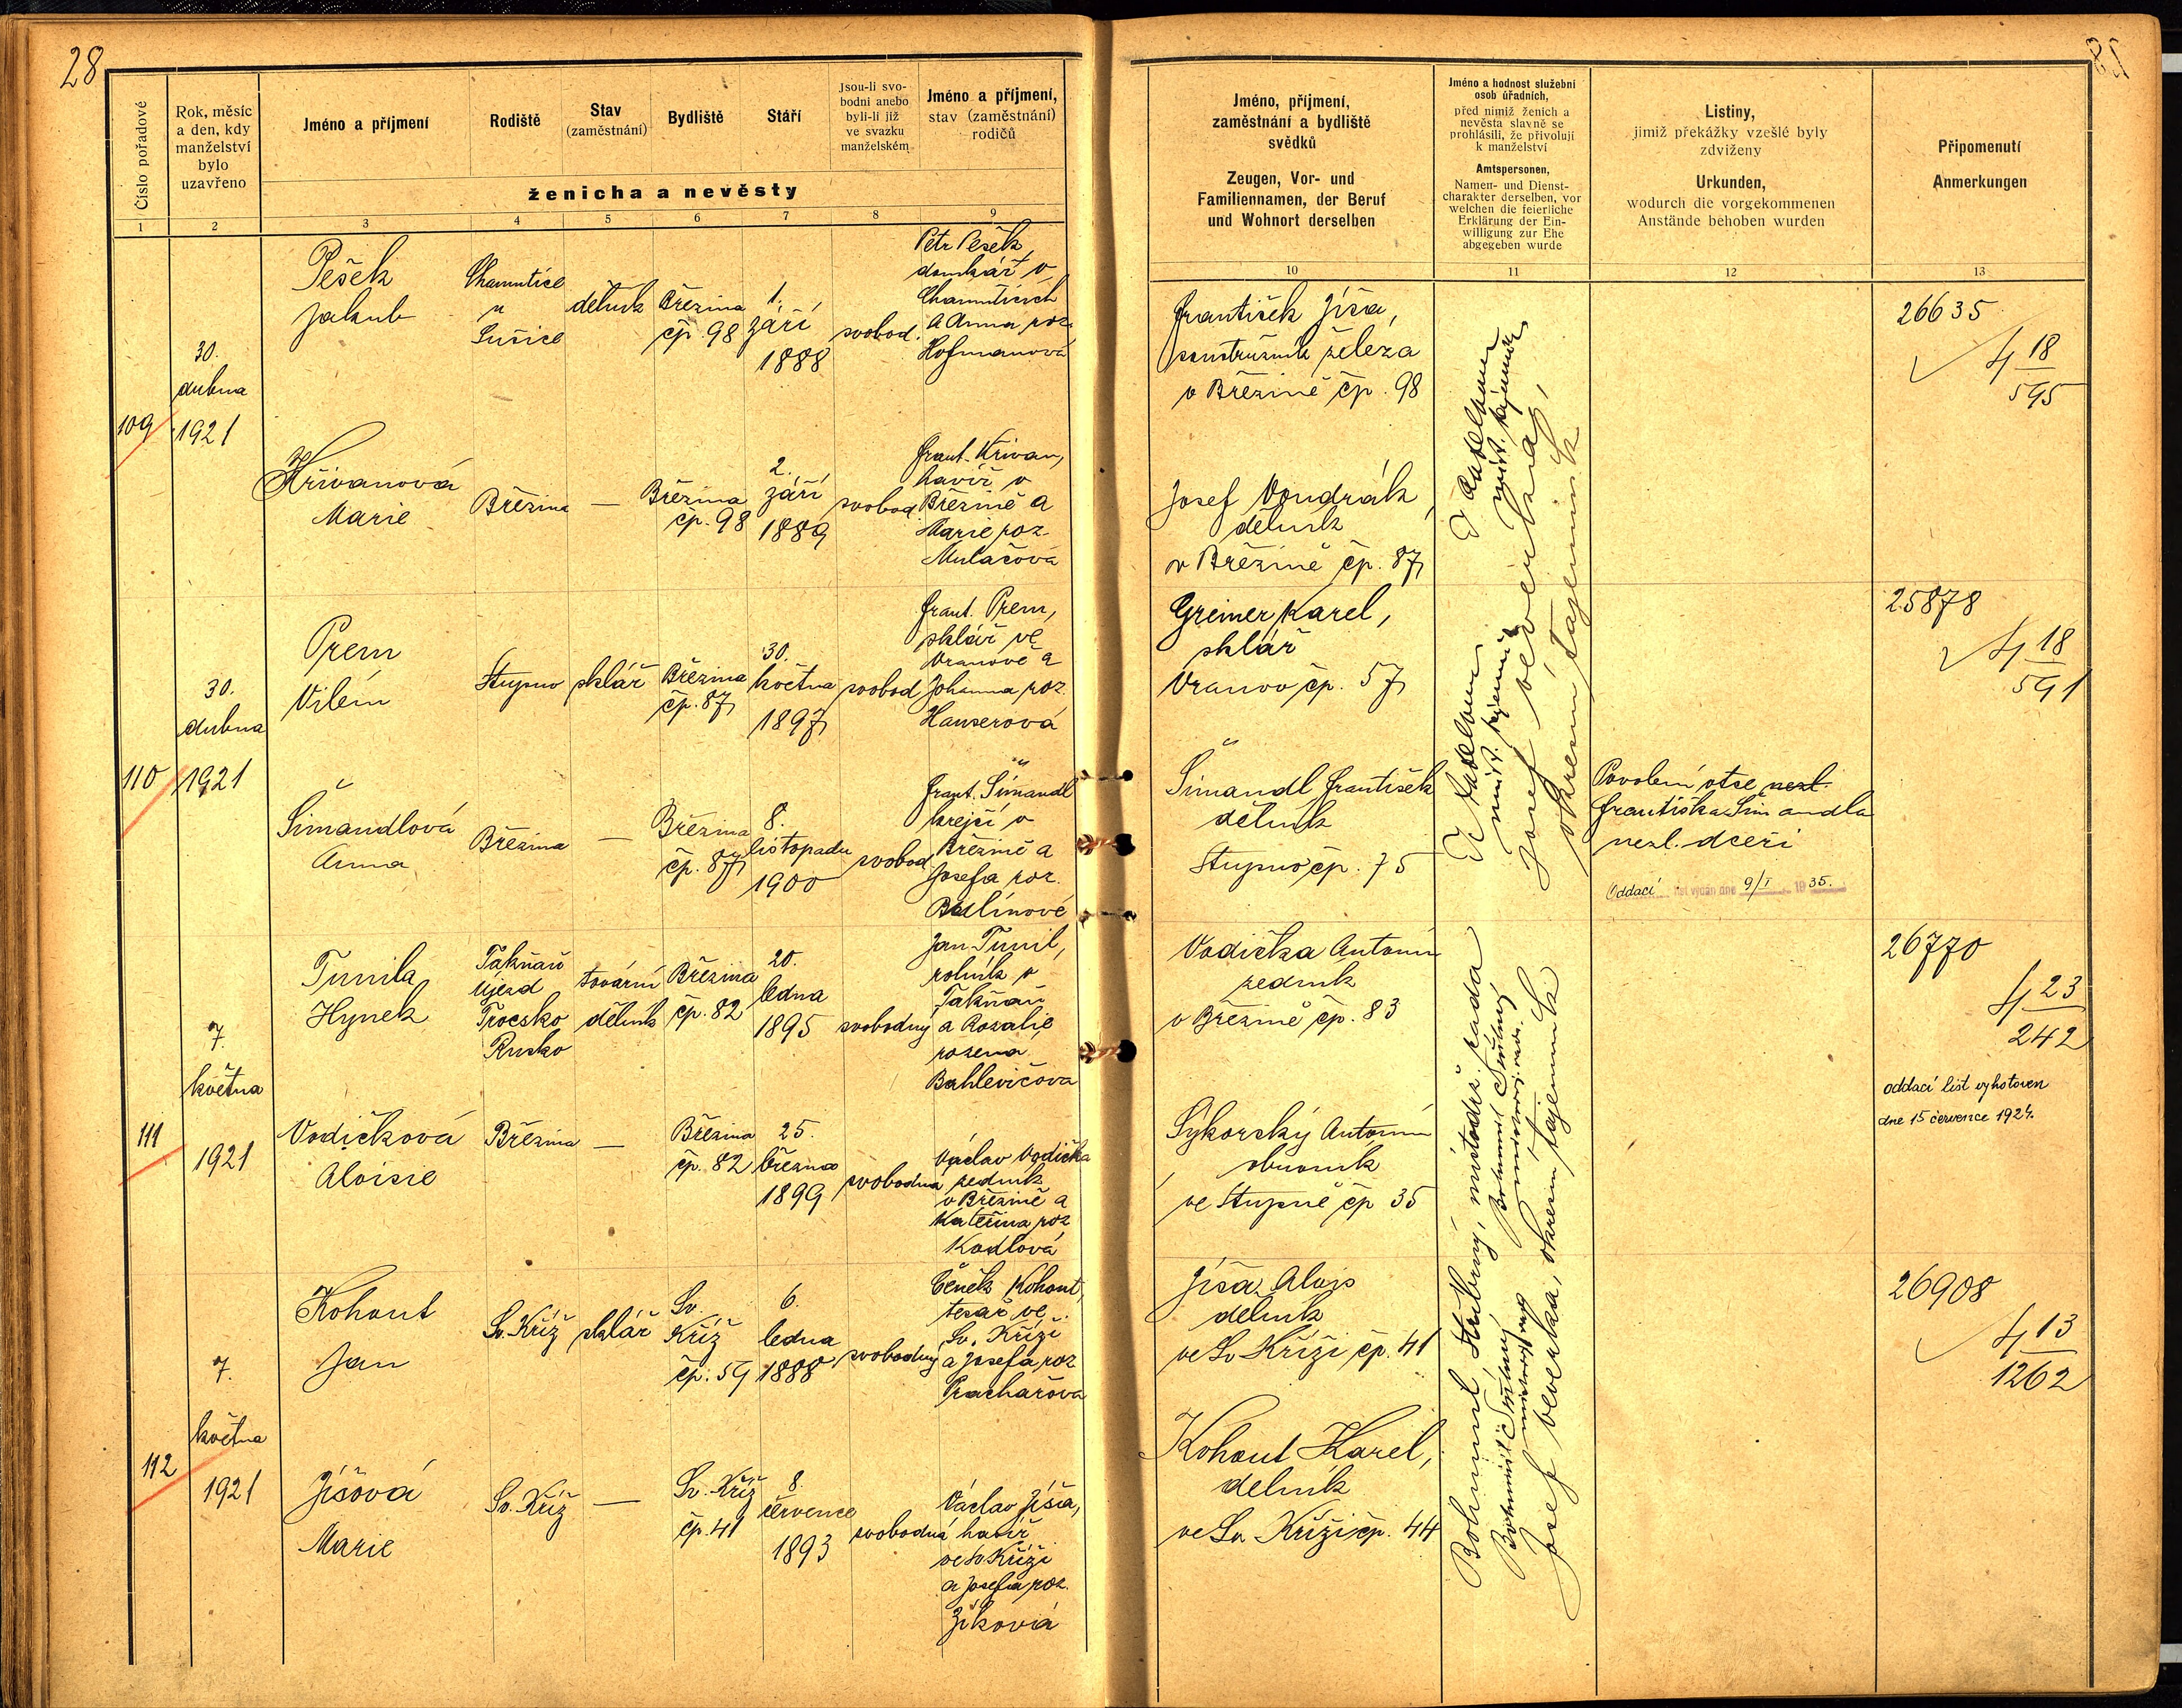 28
Číslo pořadové
Rok, měsíc
a den, kdy
manželství
bylo
uzavřeno
Jméno a příjmení
Rodiště
Stav
(zaměstnání)
Bydliště
Stáří
Jsou-li svo-
bodni anebo
byli-li již
ve svazku
manželském
Jméno a příjmení,
stav (zaměstnání)
rodičů
ženicha a nevěsty
1 2 3 4 5 6 7 8 9
109
30.
dubna
1921
Pešek
Jakub
Chamutice
u
Sušice
dělník
Březina
čp. 98
1.
září
1888
svobod.
Petr Pešek
domkář v
Chamuticích
a Anna roz.
Hofmanová
Křivanová
Marie
Březina
—
Březina
čp. 98
2.
září
1889
svobod
Frant. Křivan,
havíř v
Březině a
Marie roz.
Mulačová
110
30.
dubna
1921
Prem
Vilém
Stupno
sklář
Březina
čp. 87
30.
května
1897
svobod
Frant. Prem,
sklář ve
Vranově a
Johanna roz.
Hauserová
Šimandlová
Anna
Březina
—
Březina
čp. 87
8.
listopadu
1900
svobod
Frant. Šimandl
krejčí v
Březině a
Josefa roz.
111
7.
května
1921
Tunila
Hynek
Újezd
Rusko
tovární
dělník
Březina
čp. 82
20.
ledna
1895
svobodný
Jan Tunil,
rolník v
a Rozalie
rozená
Bahlevičova
Vodičková
Aloisie
Březina
—
Březina
čp. 82
25.
března
1899
svobodná
Václav Vodička
zedník
v Březině a
Kateřina roz
Kodlová
112
7.
května
1921
Kohout
Jan
Sv. Kříž
sklář
Sv.
Kříž
čp. 59
6.
ledna
1888
svobodný
Čeněk Kohout,
tesař ve
Sv. Kříži
a Josefa roz
Prachařova
Jíšová
Marie
Sv. Kříž
—
Sv. Kříž
čp. 41
8.
července
1893
svobodná
Václav Jíša,
havíř
ve Sv. Kříži
a Josefa roz.
Zíková
Jméno, příjmení,
zaměstnání a bydliště
svědků
Zeugen, Vor- und
Familiennamen, der Beruf
und Wohnort derselben
Jméno a hodnost služební
osob úřadních,
před nimiž ženich a
nevěsta slavně se
prohlásili, že přivolují
k manželství
Amtspersonen,
Namen- und Dienst-
charakter derselben, vor
welchen die feierliche
Erklärung der Ein-
willigung zur Ehe
abgegeben wurde
Listiny,
jimiž překážky vzešlé byly
zdviženy
Urkunden,
wodurch die vorgekommenen
Anstände behoben wurden
Připomenutí
Anmerkungen
10 11 12 13
František Jíša,
soustružník železa
v Březině čp. 98
Josef Vondrák
dělník
v Březině čp. 87
Greiner Karel,
sklář
Vranov čp. 57
Šimandl František
dělník
Stupno čp. 75
Vodička Antonín
zedník
v Březině čp. 83
Sýkorský Antonín
obuvník
ve Stupně čp 35
Jíša Alois
dělník
ve Sv Kříži čp. 41
Kohout Karel,
dělník
ve Sv. Kříži čp. 44
Josef Veverka,
okresní tajemník
Josef Veverka,
okresní tajemník
Bohumil Stříbrný, místodrž. rada
Josef Veverka, okresní tajemník
Povolení otce nezl.
Františka Šimandla
nezl. dceři
Oddací list vydán dne 9/I 1935.
26635
18
595
25878
18
591
26770
23
242
oddací list vyhotoven
dne 15 července 1924.
26908
13
1262